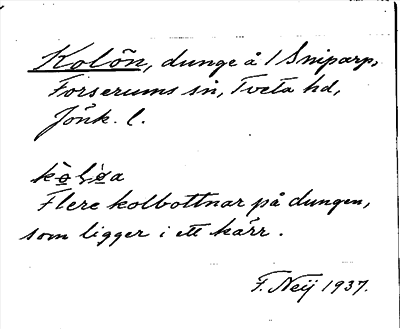 Kolön, dunge å 1 Sniparp,
Forserums sn, Tveta hd,
Jönk. l.
Flere kolbottnar på dungen,
som ligger i ett kärr.
F. Neij 1937.